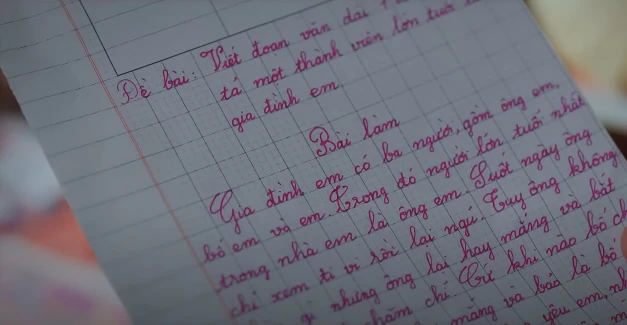 Đề bài: Viết đoạn văn dài
tả một thành viên lớn tuổi
gia đình em.
Bài làm
Gia đình em có ba người, gồm ông em,
bố em và em. Trong đó người lớn tuổi nhất
trong nhà em là ông em. Suốt ngày ông
chỉ xem ti vi rồi lại ngủ. Tuy ông không
gì nhưng ông lại hay mắng và bắt
chăm chỉ. Cứ khi nào bố
mắng và bảo là bố
yêu em,